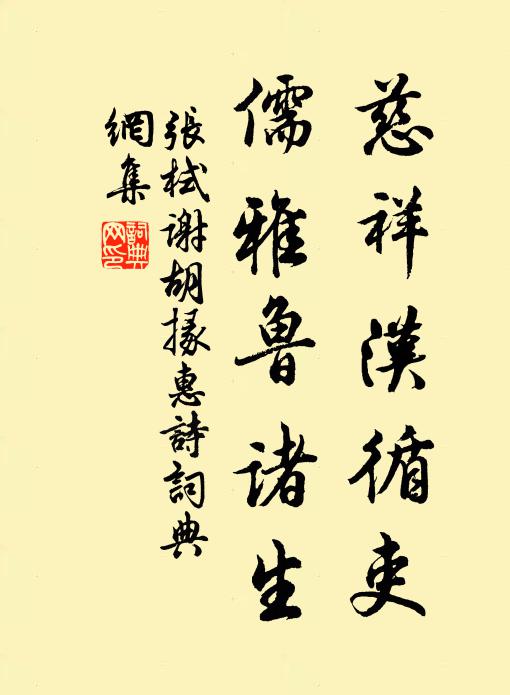 慈祥漢循吏
儒雅魯諸生
張栻謝胡掾惠詩詞典
網集
詞典網印